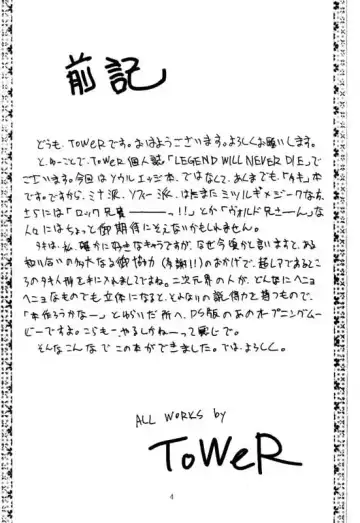 前記
どうも、ToWeRです。おはようございます。よろしくお願いします。
と、ゆーことで、ToWeR個人誌「LEGEND WILL NEVER DIE」で
ございます。今回はソウルエッジ本、ではなくて、あくまでも、「タキ」本
です。ですから、ミナ派、ソフィー派、はたまたミツルギメジークな方、
さらには「ロック兄貴ーーーっ!!」とか「ヴォルド兄さーん」な
人々にはちょっと御期待にそえないかもしれません。
タキは、私、確かに好きなキャラですが、なぜ今頃かと言いますと、ある
知り合いの多大なる御協力(多謝!!)のおかげで、超レアであるところ
のタキ人形を手に入れましてですね。二次元界の人が、どんなにヘニョ
ヘニョなものでも立体になると、とみなりの説得力を持つもので、
「本作ろうかなー」とゆらいだ所へ、PS版のあのオープニングムー
ビーですよ。こらもー、やるしかねーって感じで。
そんなこんなでこの本ができました。では、よろしく。
ALL WORKS by
ToWeR
4